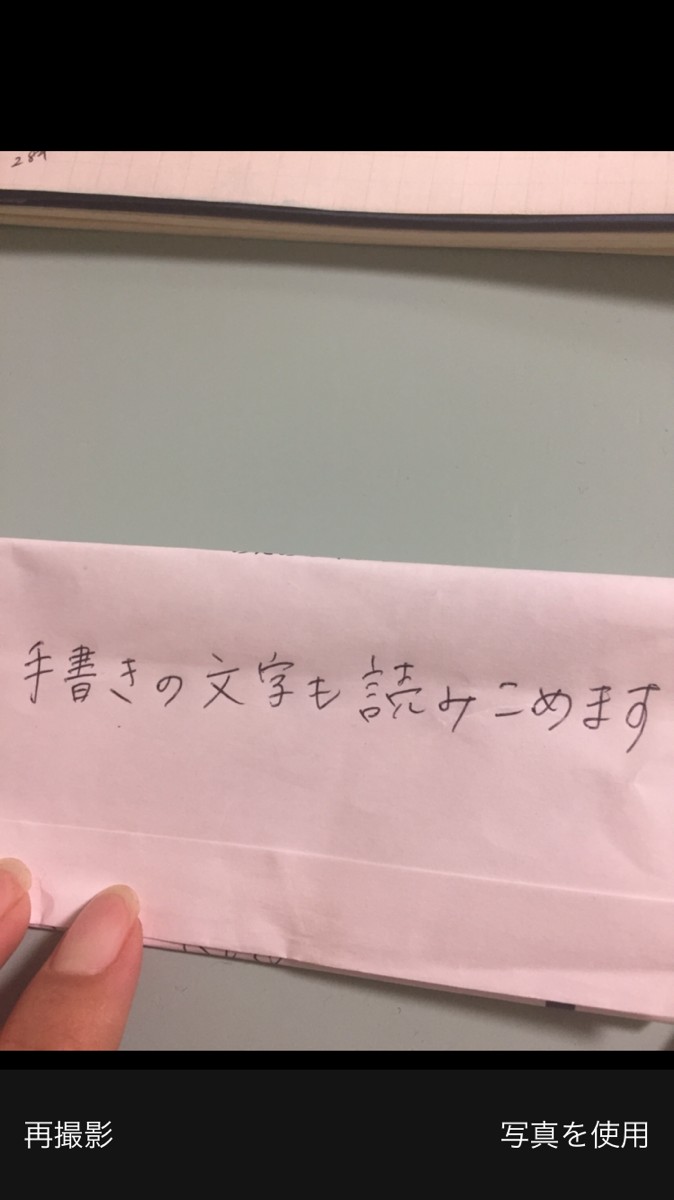 手書きの文字も読みこめます
再撮影
写真を使用